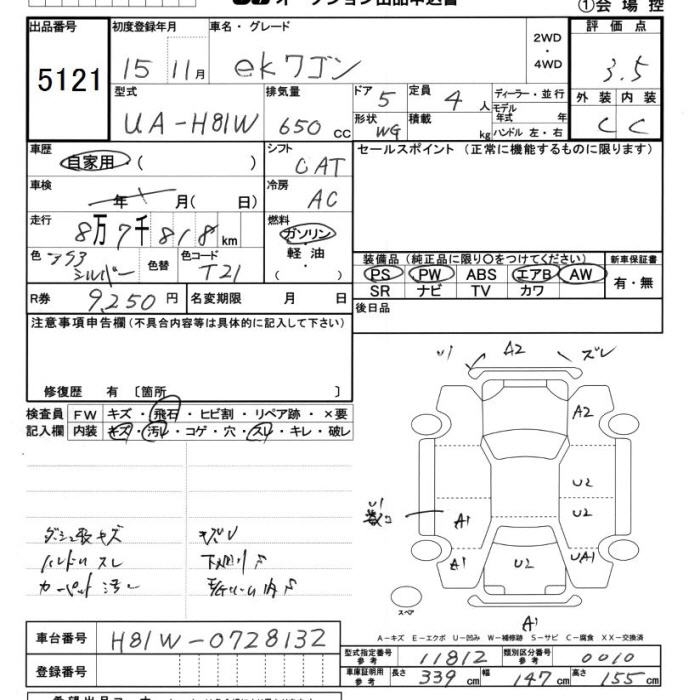 オークション出品申込書
①会場控
出品番号 5121
初度登録年月 15 11月
車名・グレード ekワゴン
2WD・4WD
評価点 3.5
型式 UA-H81W
排気量 650 cc
ドア 5
定員 4 人
形状 WG
積載 kg
ディーラー・並行
モデル年式 年
ハンドル 左・右
外装 C
内装 C
車歴 自家用 ( )
シフト CAT
セールスポイント (正常に機能するものに限ります)
車検 年 月( 日)
冷房 AC
走行 8万7千818km
燃料 ガソリン・軽油・( )
色 シルバー
色替
色コード T21
装備品 (純正品に限り○をつけてください)
新車保証書
PS PW ABS エアB AW
SR ナビ TV カワ
有・無
R券 9,250円
名変期限 月 日
後日品
注意事項申告欄(不具合内容等は具体的に記入して下さい)
修復歴 有 〔箇所 〕
検査員記入欄
FW キズ・飛石・ヒビ割・リペア跡・×要
内装 キズ・汚れ・コゲ・穴・スレ・キレ・破レ
U1 A2 ズレ
A2
U2
U2
U1
A1
A1 U2 UA1
A1
スペア
ハンドルスレ
カーペット汚レ
A-キズ E-エクボ U-凹み W-補修跡 S-サビ C-腐食 XX-交換済
車台番号 H81W-0728132
登録番号
型式指定番号参考 11812
類別区分番号参考 0010
車庫証明用参考 長さ 339 cm 幅 147 cm 高さ 155 cm